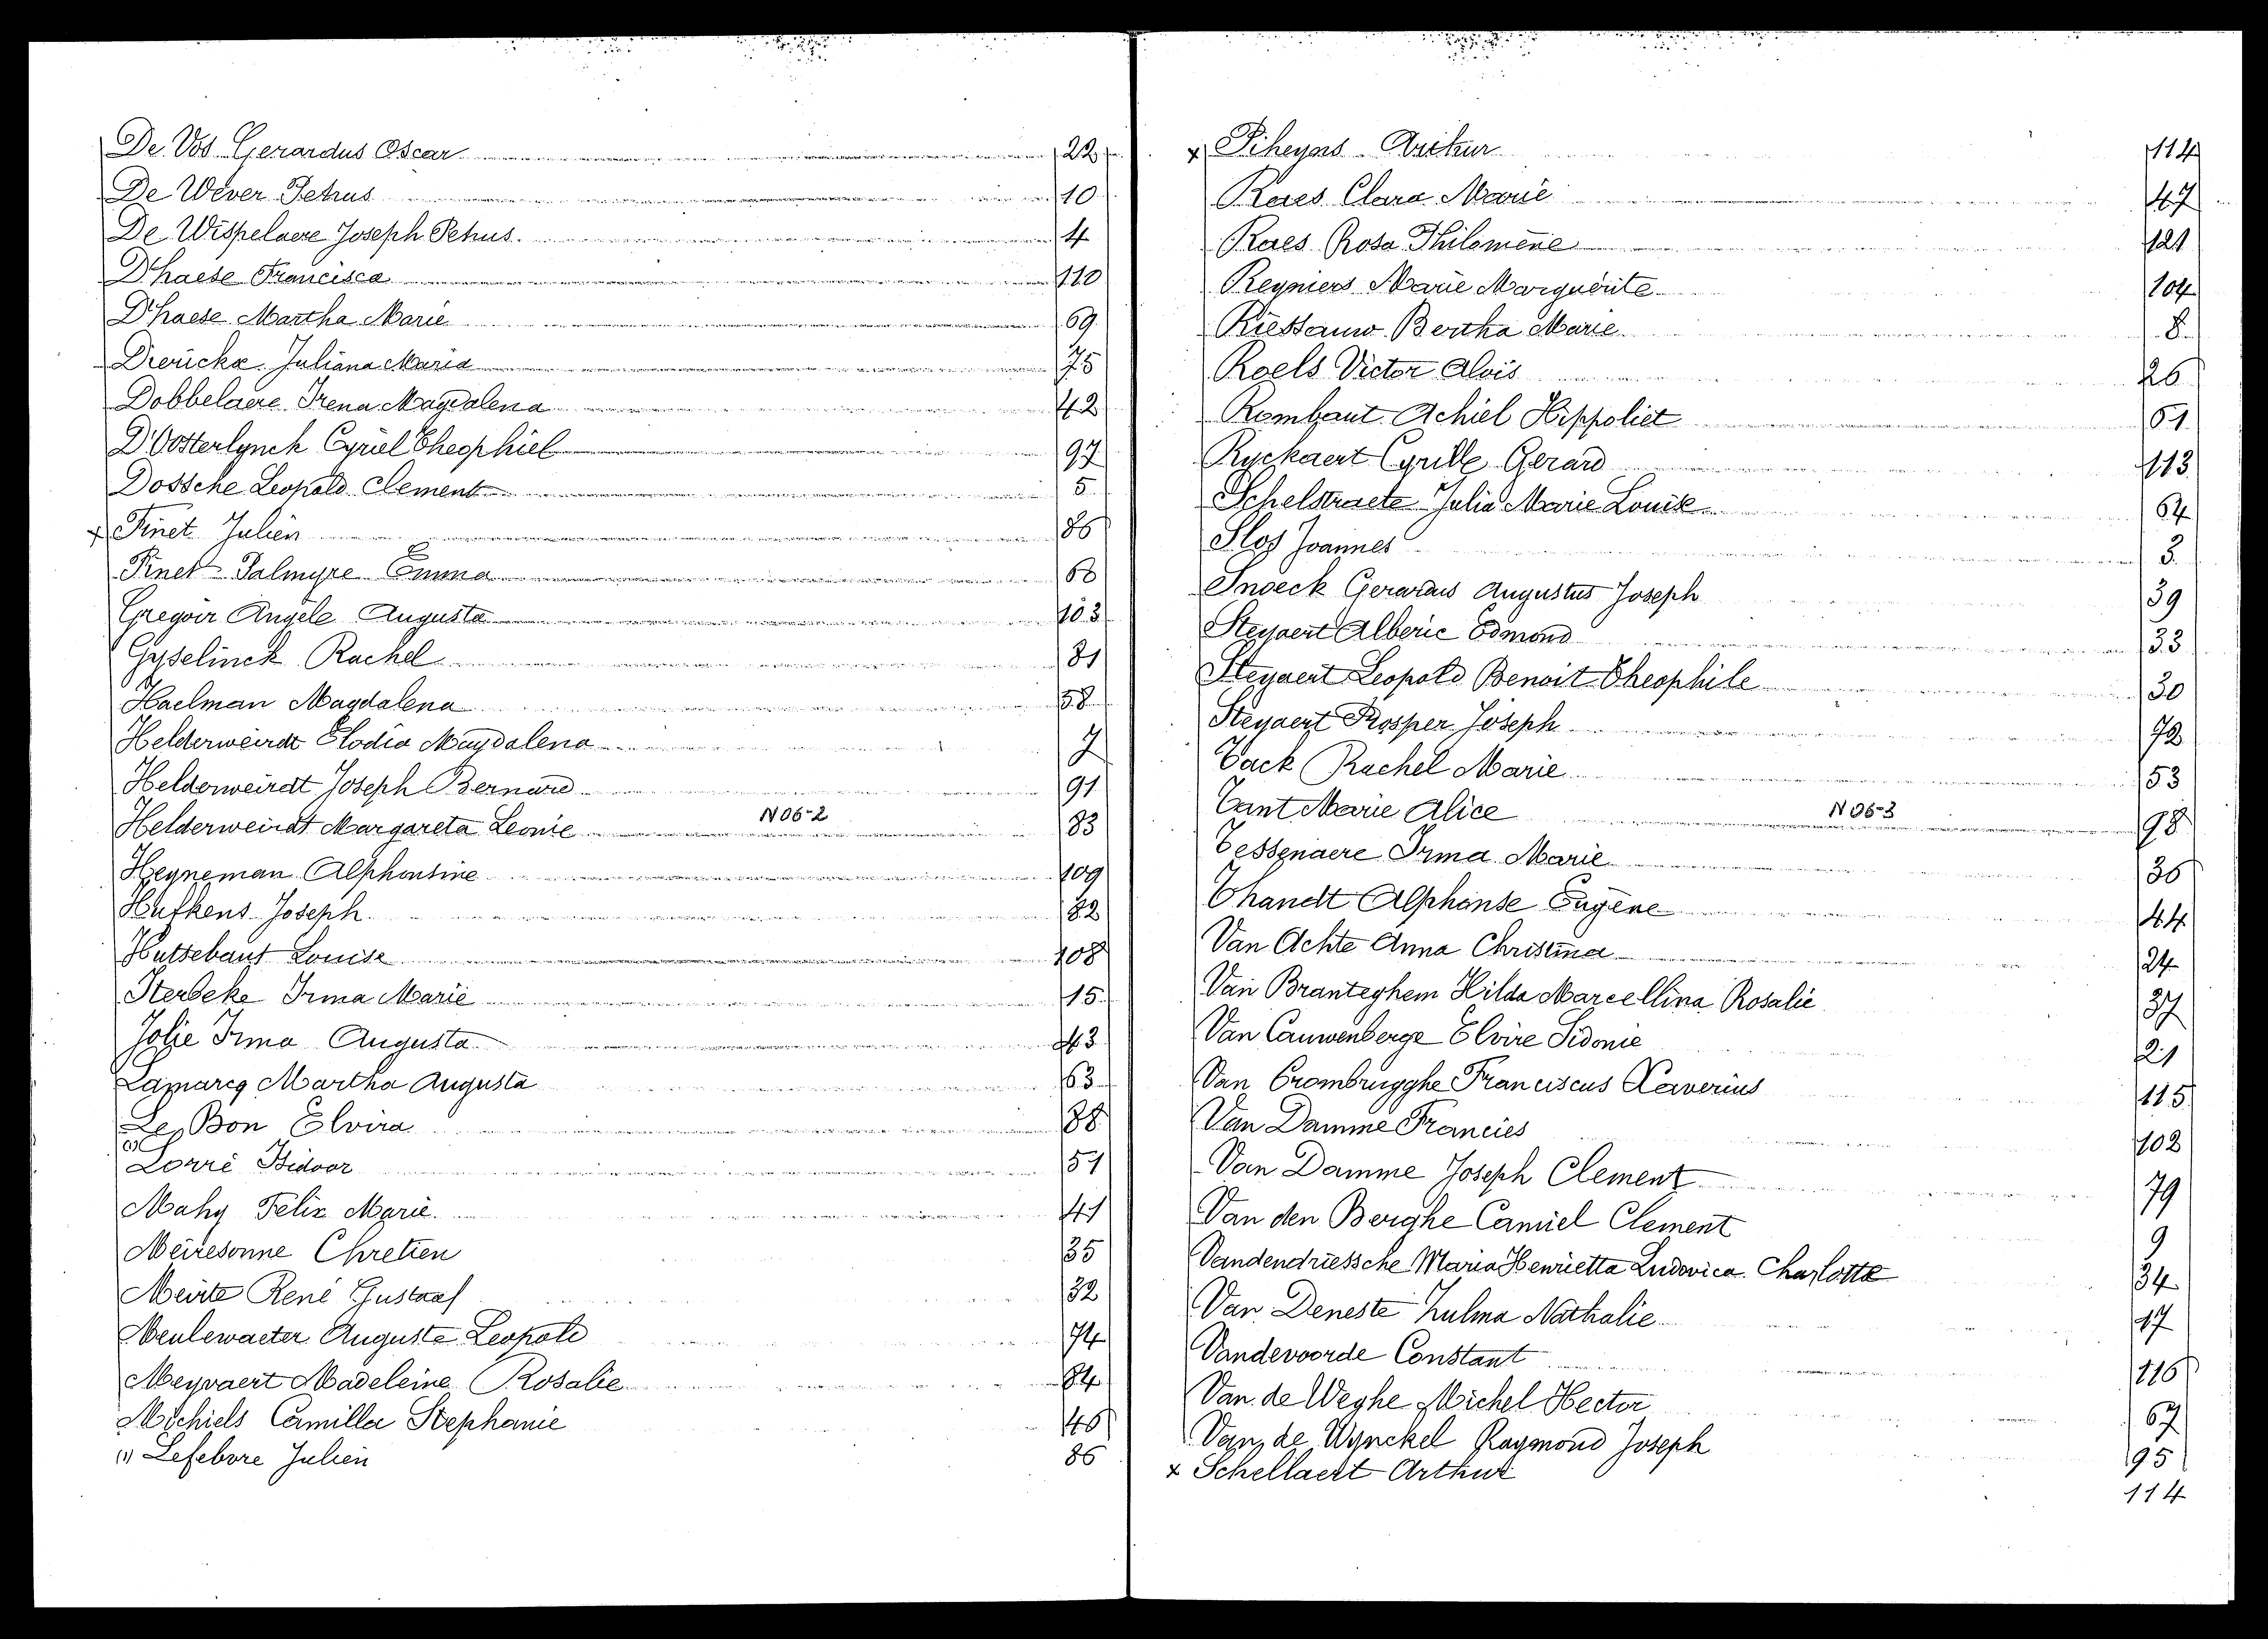 De Vos Gerardus Oscar 22
De Wever Petrus 10
De Wispelaere Joseph Petrus. 4
D'haese Francisca 110
D'haese Martha Marie 69
Dierickx Juliana Maria 75
Dobbelaere Irena Magdalena 42
D'Oosterlynck Cyriel Theophiel 97
Dossche Leopold Clement 5
x Finet Julien 86
Finet Palmyre Emma 68
Gregoir Angèle Augusta 103
Gyselinck Rachel 81
Haelman Magdalena 58
Helderweirdt Elodia Magdalena 7
Helderweirdt Joseph Bernard 91
N 06-2
Helderweirdt Margareta Leonie 83
Heyneman Alphonsine 109
Hufkens Joseph 82
Hutsebaut Louise 108
Sterbeke Irma Marie 15
Jolie Irma Augusta 43
Lamarcq Martha Augusta 63
Le Bon Elvira 88
(1)
Lorré Isidoor 51
Mahy Felix Marie. 41
Meiresonne Chretien 35
Meirte René Gustaaf 32
Meulewaeter Auguste Leopold 74
Meyvaert Madeleine Rosalie 84
Michiels Camilla Stephanie 46
(1) Lefebvre Julien 86
x Piheyns Arthur 114
Raes Clara Marie 47
Raes Rosa Philomène 121
Reyniers Marie Marguerite 104
Riessauw Bertha Marie 8
Roels Victor Aloïs 26
Rombaut Achiel Hippoliet 61
Ryckaert Cyrille Gerard 113
Schelstraete Julia Marie Louise 64
Slos Joannes 3
Snoeck Gerardus Augustus Joseph 39
Steyaert Alberic Edmond 33
Steyaert Leopold Benoit Theophile 30
Steyaert Prosper Joseph 72
Tack Rachel Marie 53
Tant Marie Alice 98
N 06-3
Tessenaere Irma Marie 36
Thandt Alphonse Eugène 44
Van Achte Anna Christina 24
Van Branteghem Hilda Marcellina Rosalie 37
Van Cauwenberge Elvire Sidonie 21
Van Crombrugghe Franciscus Xaverius 115
Van Damme Francies 102
Van Damme Joseph Clement 79
Van den Berghe Camiel Clement 9
Vandendriessche Maria Henrietta Ludovica Charlotta 34
Van Deneste Zulma Nathalie 17
Vandevoorde Constant 116
Van de Weghe Michel Hector 67
Van de Wynckel Raymond Joseph 95
x Schellaert Arthur 114